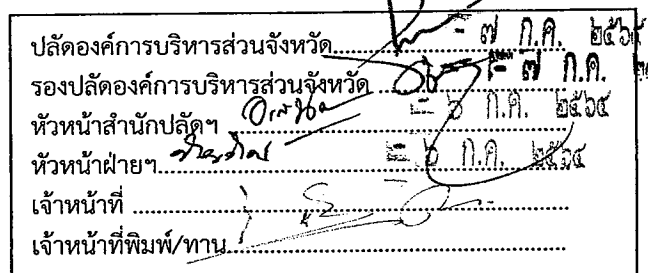 ปลัดองค์การบริหารส่วนจังหวัด - ๗ ก.ค. ๒๕๖๔
รองปลัดองค์การบริหารส่วนจังหวัด - ๗ ก.ค.
หัวหน้าสำนักปลัดฯ - ๖ ก.ค. ๒๕๖๔
หัวหน้าฝ่ายฯ - ๖ ก.ค. ๒๕๖๔
เจ้าหน้าที่
เจ้าหน้าที่พิมพ์/ทาน